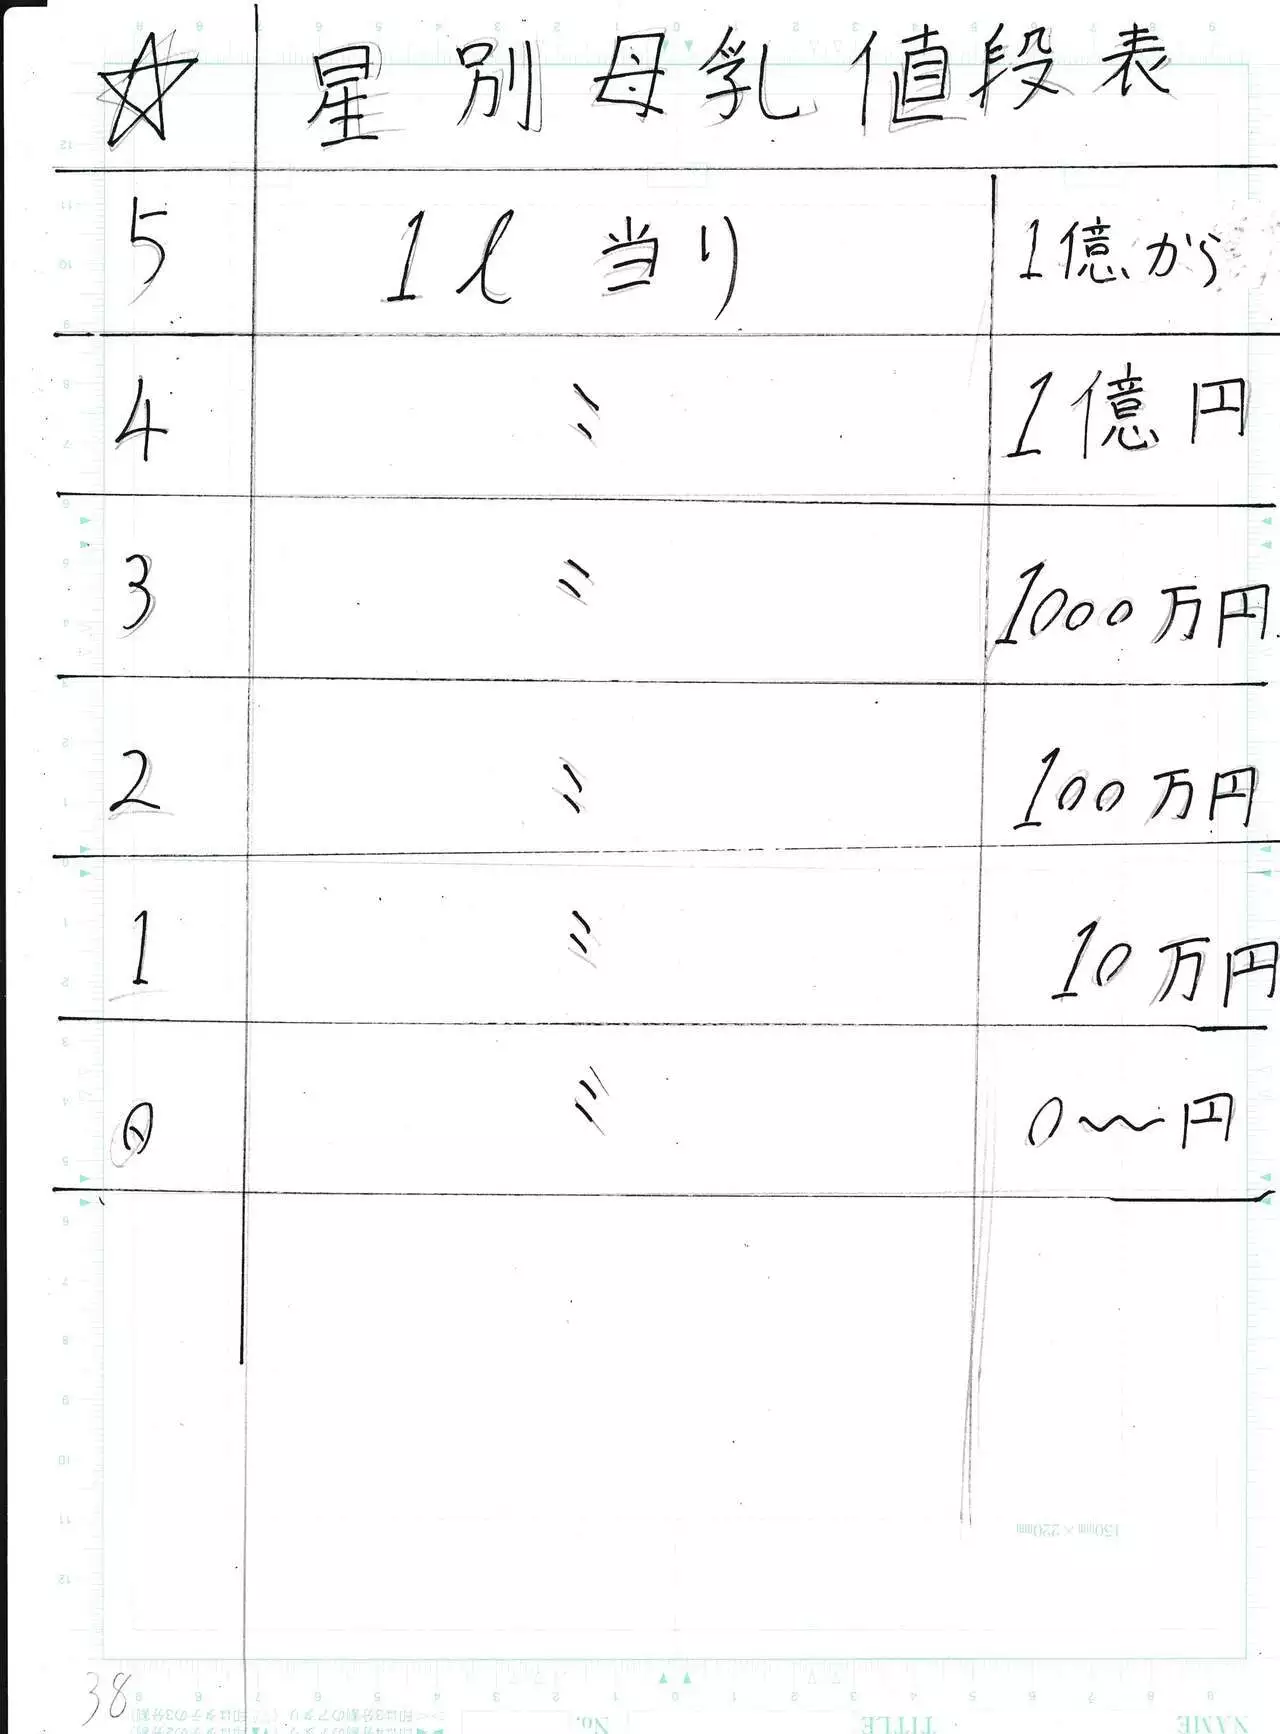 ☆ 星別母乳値段表
5 1ℓ当り 1億から
4 〃 1億円
3 〃 1000万円
2 〃 100万円
1 〃 10万円
0 〃 0〜円
150mm×220mm
38
No. TITLE NAME